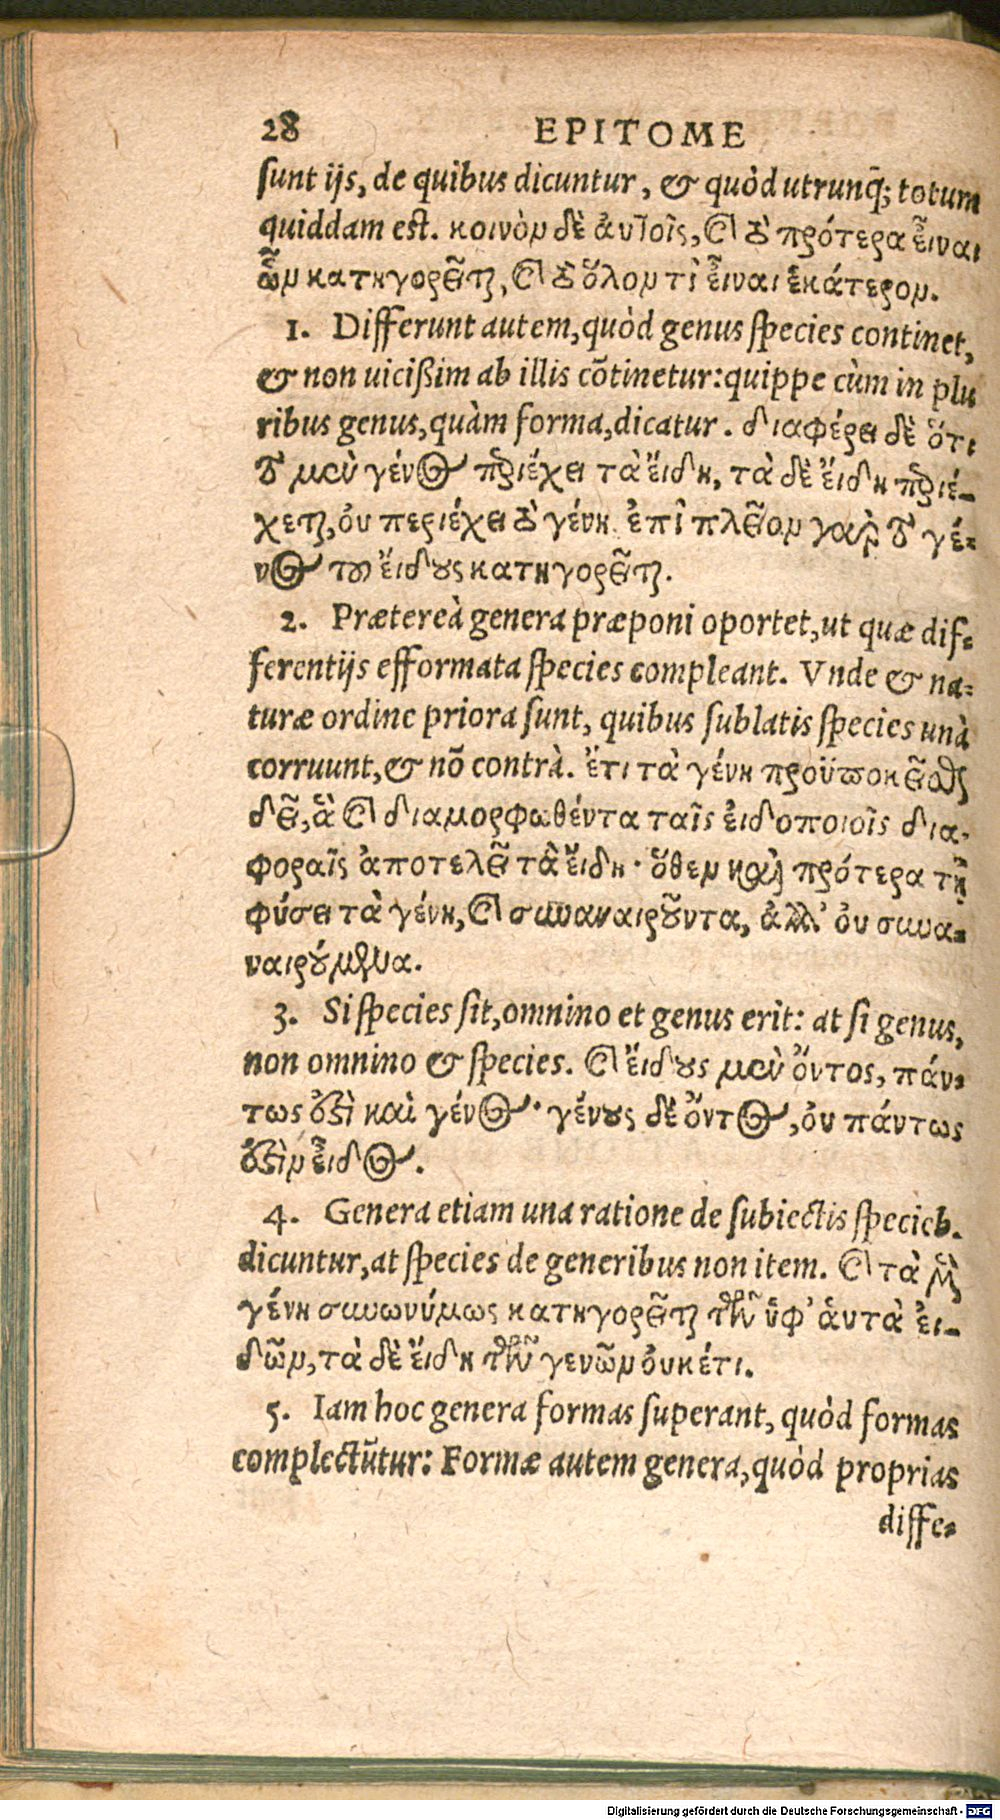 28 EPITOME
sunt ijs, de quibus dicuntur, & quòd utrunq; totum
quiddam est. κοινὸν δὲ ἀυτοῖς, καὶ τὸ πρότερα εἶναι
ὧν κατηγορεῖται, καὶ τὸ ὅλον τὶ εἶναι ἑκάτερον.
1. Differunt autem, quòd genus species continet,
& non uicißim ab illis cõtinetur: quippe cùm in plu
ribus genus, quàm forma, dicatur. διαφέρει δὲ ὅτι
τὸ μὲν γένος περιέχει τὰ ἔιδη, τὰ δὲ ἔιδη περιέ-
χεται, ὀυ περιέχει τὰ γένη. ἐπὶ πλεῖον γαρ τὸ γέ-
νος τοῦ ἔιδους κατηγορεῖται.
2. Prætereà genera præponi oportet, ut quæ dif-
ferentijs efformata species compleant. Vnde & na-
turæ ordine priora sunt, quibus sublatis species unà
corruunt, & nõ contrà. ἔτι τὰ γένη προϋποκεῖσθαι
δεῖ, ἃ καὶ διαμορφωθέντα ταῖς ἐιδοποιοῖς δια-
φοραῖς ἀποτελεῖ τὰ ἔιδη· ὅθεν καὶ πρότερα τῇ
φύσει τὰ γένη, καὶ συναναιροῦντα, ἀλλ' ὀυ συνα-
ναιρούμενα.
3. Si species sit, omnino et genus erit: at si genus,
non omnino & species. καὶ ἔιδους μὲν ὄντος, πάν-
τως ἐστὶ καὶ γένος· γένους δὲ ὄντος, ὀυ πάντως
ἐστὶν εἶδος.
4. Genera etiam una ratione de subiectis specieb.
dicuntur, at species de generibus non item. καὶ τὰ μὲν
γένη συνωνύμως κατηγορεῖται τῶν ὑφ' ἁυτὰ ἐι-
δῶν, τὰ δὲ ἔιδη τῶν γενῶν ὀυκέτι.
5. Iam hoc genera formas superant, quòd formas
complectũtur: Formæ autem genera, quòd proprias
diffe-
Digitalisierung gefördert durch die Deutsche Forschungsgemeinschaft - DFG